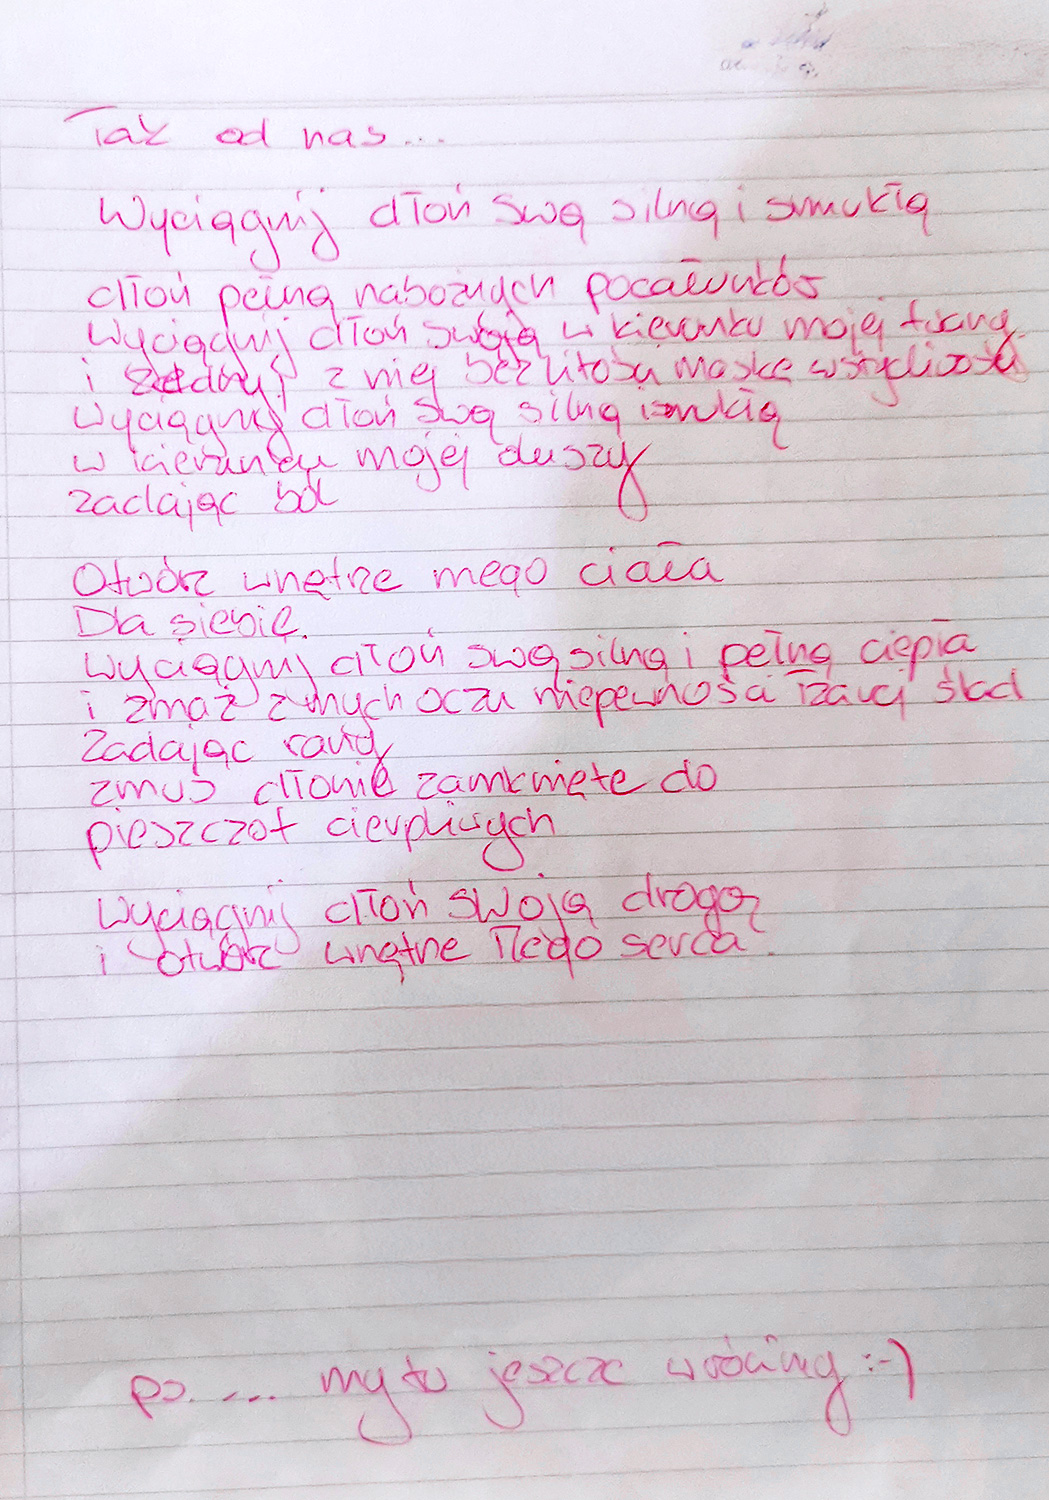 Tak od nas...
Wyciągnij dłoń swą silną i smukłą
dłoń pełną nabożnych pocałunków
Wyciągnij dłoń swoją w kierunku mojej twarzy
i zedrnij z niej bezlitośu maskę wstydliwości
Wyciągnij dłoń swą silną i smukłą
w kierunku mojej duszy
zadając ból
Otwórz wnętrze mego ciała
Dla siebie.
Wyciągnij dłoń swą silną i pełną ciepła
i zmaż z mych oczu niepewności łzawej ślad
Zadając ranę
zmuś dłonie zamknięte do
pieszczot cierpliwych
Wyciągnij dłoń swoją drogą
i otwórz wnętrze Tego serca.
ps. ... my tu jeszcze wrócimy :-)